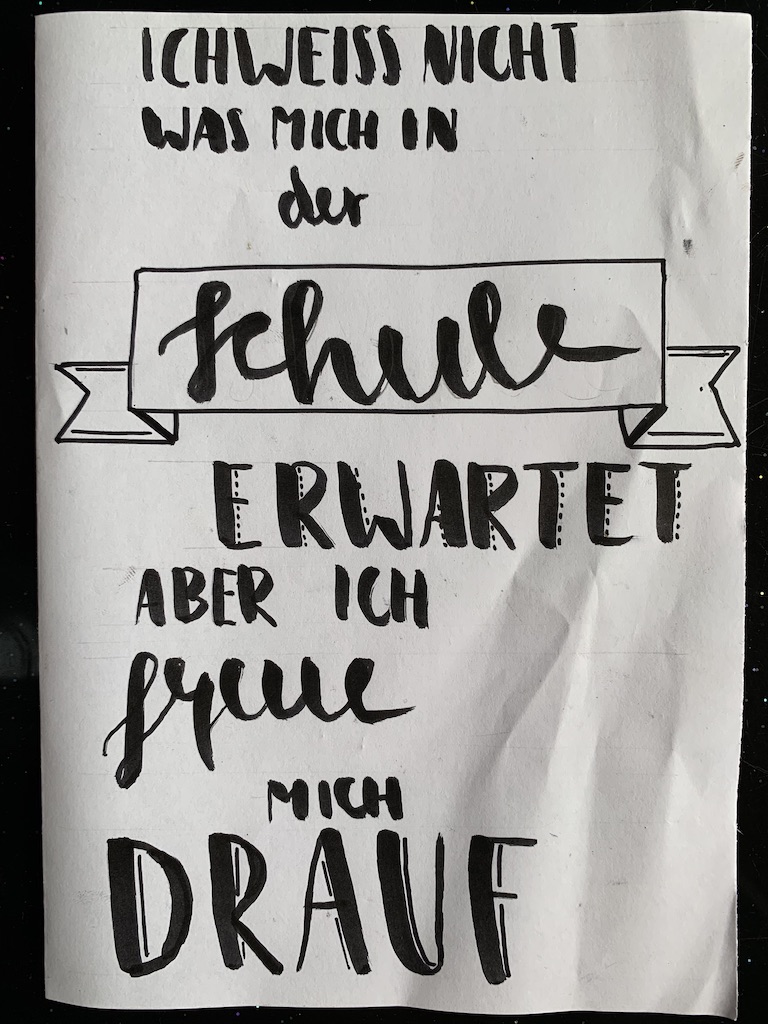 ICH WEISS NICHT
WAS MICH IN
der
Schule
ERWARTET
ABER ICH
freue
MICH
DRAUF